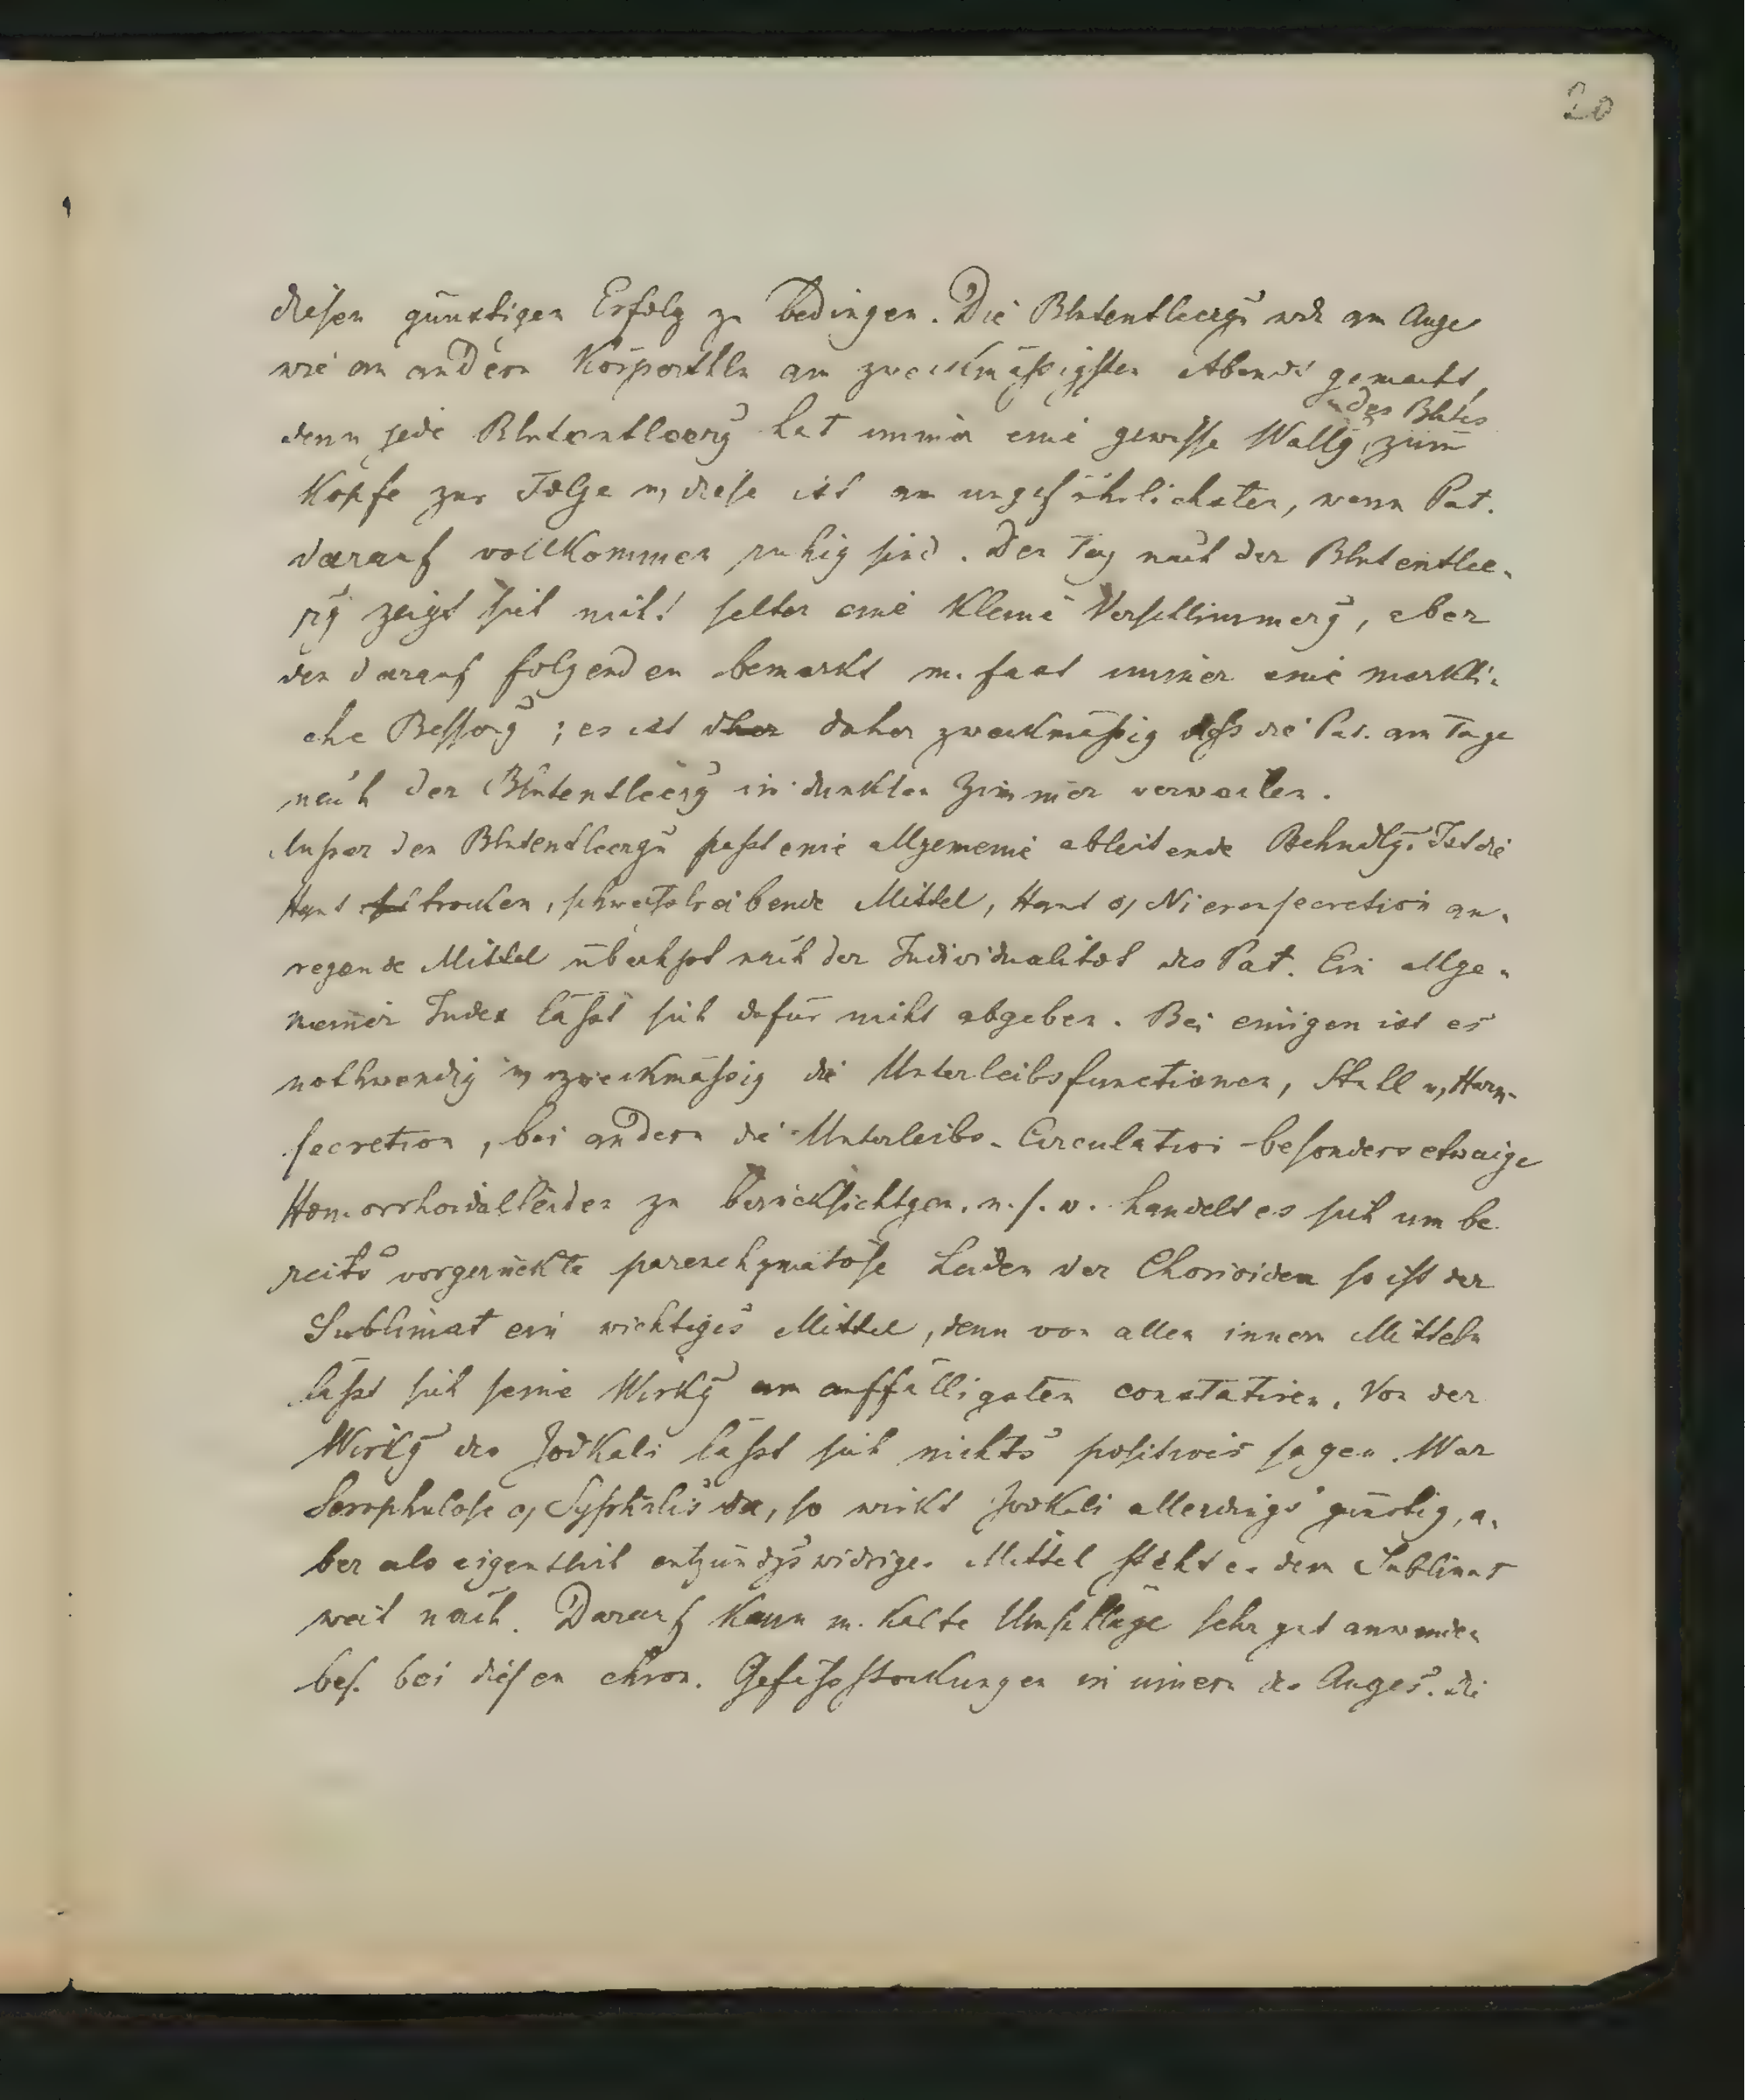 20
diesen günstigen Erfolg zu bedingen. Die Blutentleergn wdn am Auge
wie an andern Körpertheiln am zweckmässigsten Abends gemacht,
des Blutes
denn jede Blutentleerg hat immer eine gewisse Wallg zum
Kopfe zur Folge u, diese ist am ungefährlichsten, wenn Pat.
darauf vollkommen ruhig sind. Der Tag nach der Blutentlee-
rg zeigt sich nicht selten eine kleine Verschlimmerg, aber
den darauf folgenden bemerkt m. fast immer eine merkli-
che Besserg; es ist daher zweckmässig dass die Pat. am Tage
nach der Blutentleerg in dunklen Zimmer verweilen.
Ausser den Blutentleergn passt eine allgemeine ableitende Behndlg. Ist die
Haut trocken, schweisstreibende Mittel, Haut o, Nierensecretion an-
regende Mittel überhpt nach der Individualität des Pat. Ein allge-
meiner Index lässt sich dafür nicht abgeben. Bei einigen ist es
nothwendig u, zweckmässig die Unterleibsfunctionen, Stuhl u, Harn-
secretion, bei andern die Unterleibs-Circulation besonders etwaige
Hämorrhoidalleiden zu berücksichtgen. u. s. w. handelt es sich um be
reits vorgerückte parenchymatöse Leiden der Chorioidea so ist der
Sublimat ein wichtiges Mittel, denn von allen innern Mitteln
lässt sich seine Wirkg am auffälligsten constatiren. Von der
Wirkg des Jodkali lässt sich nichts positives sagen. War
Scrophulose o, Syphilis da, so wirkt Jodkali allerdings günstig, a-
ber als eigenthlich entzündgswidriges Mittel steht es dem Sublimat
weit nach. Darauf kann m. kalte Umschläge sehr gut anwenden
bes. bei diesen chron. Gefässstockungen im innern des Auges. die